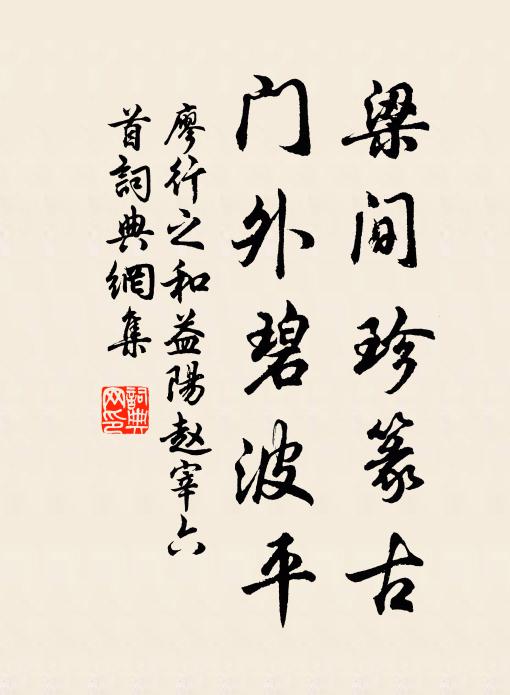 梁间珍篆古
门外碧波平
廖行之和益陽赵宰六
首詞典網集
詞典
网印